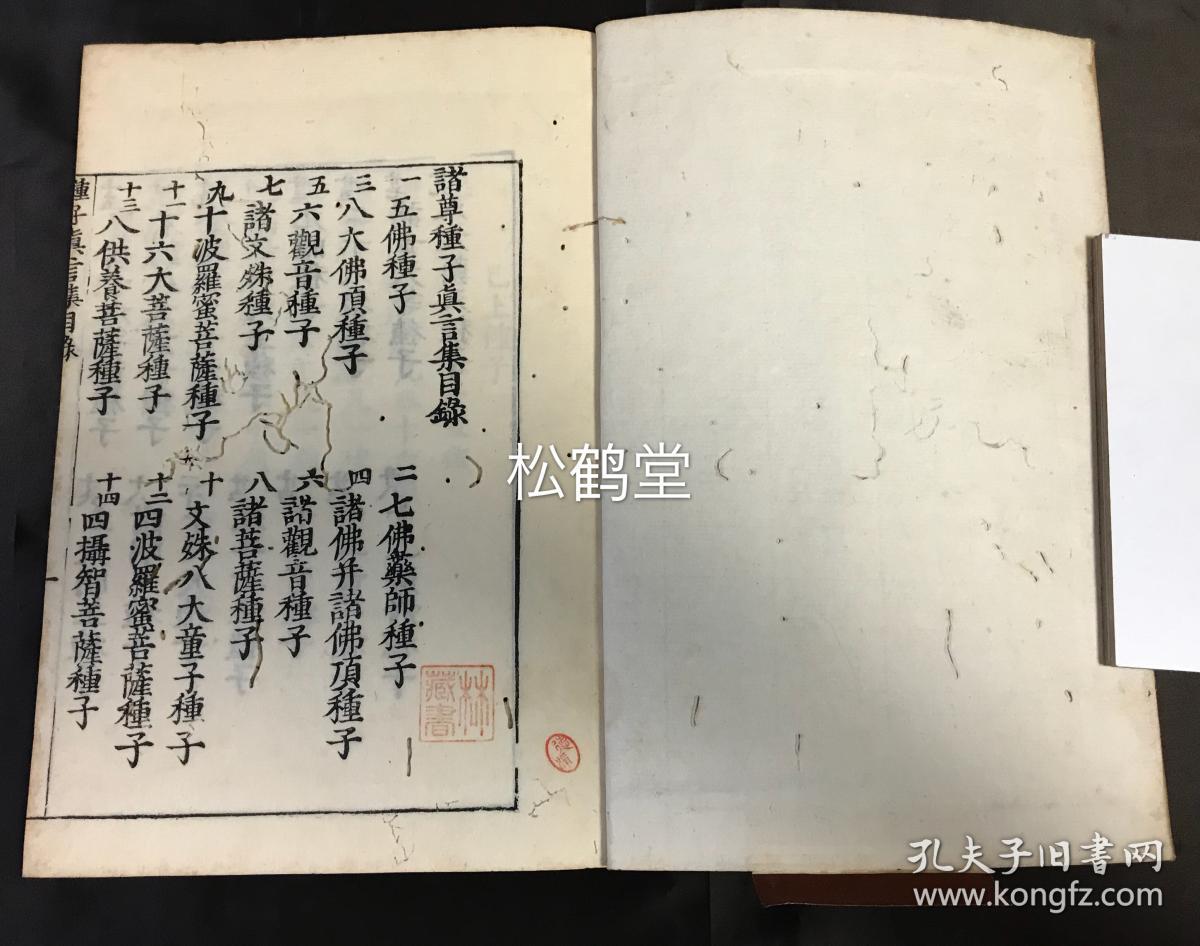 諸尊種子眞言集目錄
一 五佛種子
二 七佛藥師種子
三 八大佛頂種子
四 諸佛并諸佛頂種子
五 六觀音種子
六 諸觀音種子
七 諸文殊種子
八 諸菩薩種子
九 十波羅蜜菩薩種子
十 文殊八大童子種子
十一 十六大菩薩種子
十二 四波羅蜜菩薩種子
十三 八供養菩薩種子
十四 四攝智菩薩種子
種子眞言集目錄
林
藏書
松鹤堂
孔夫子旧书网
www.kongfz.com